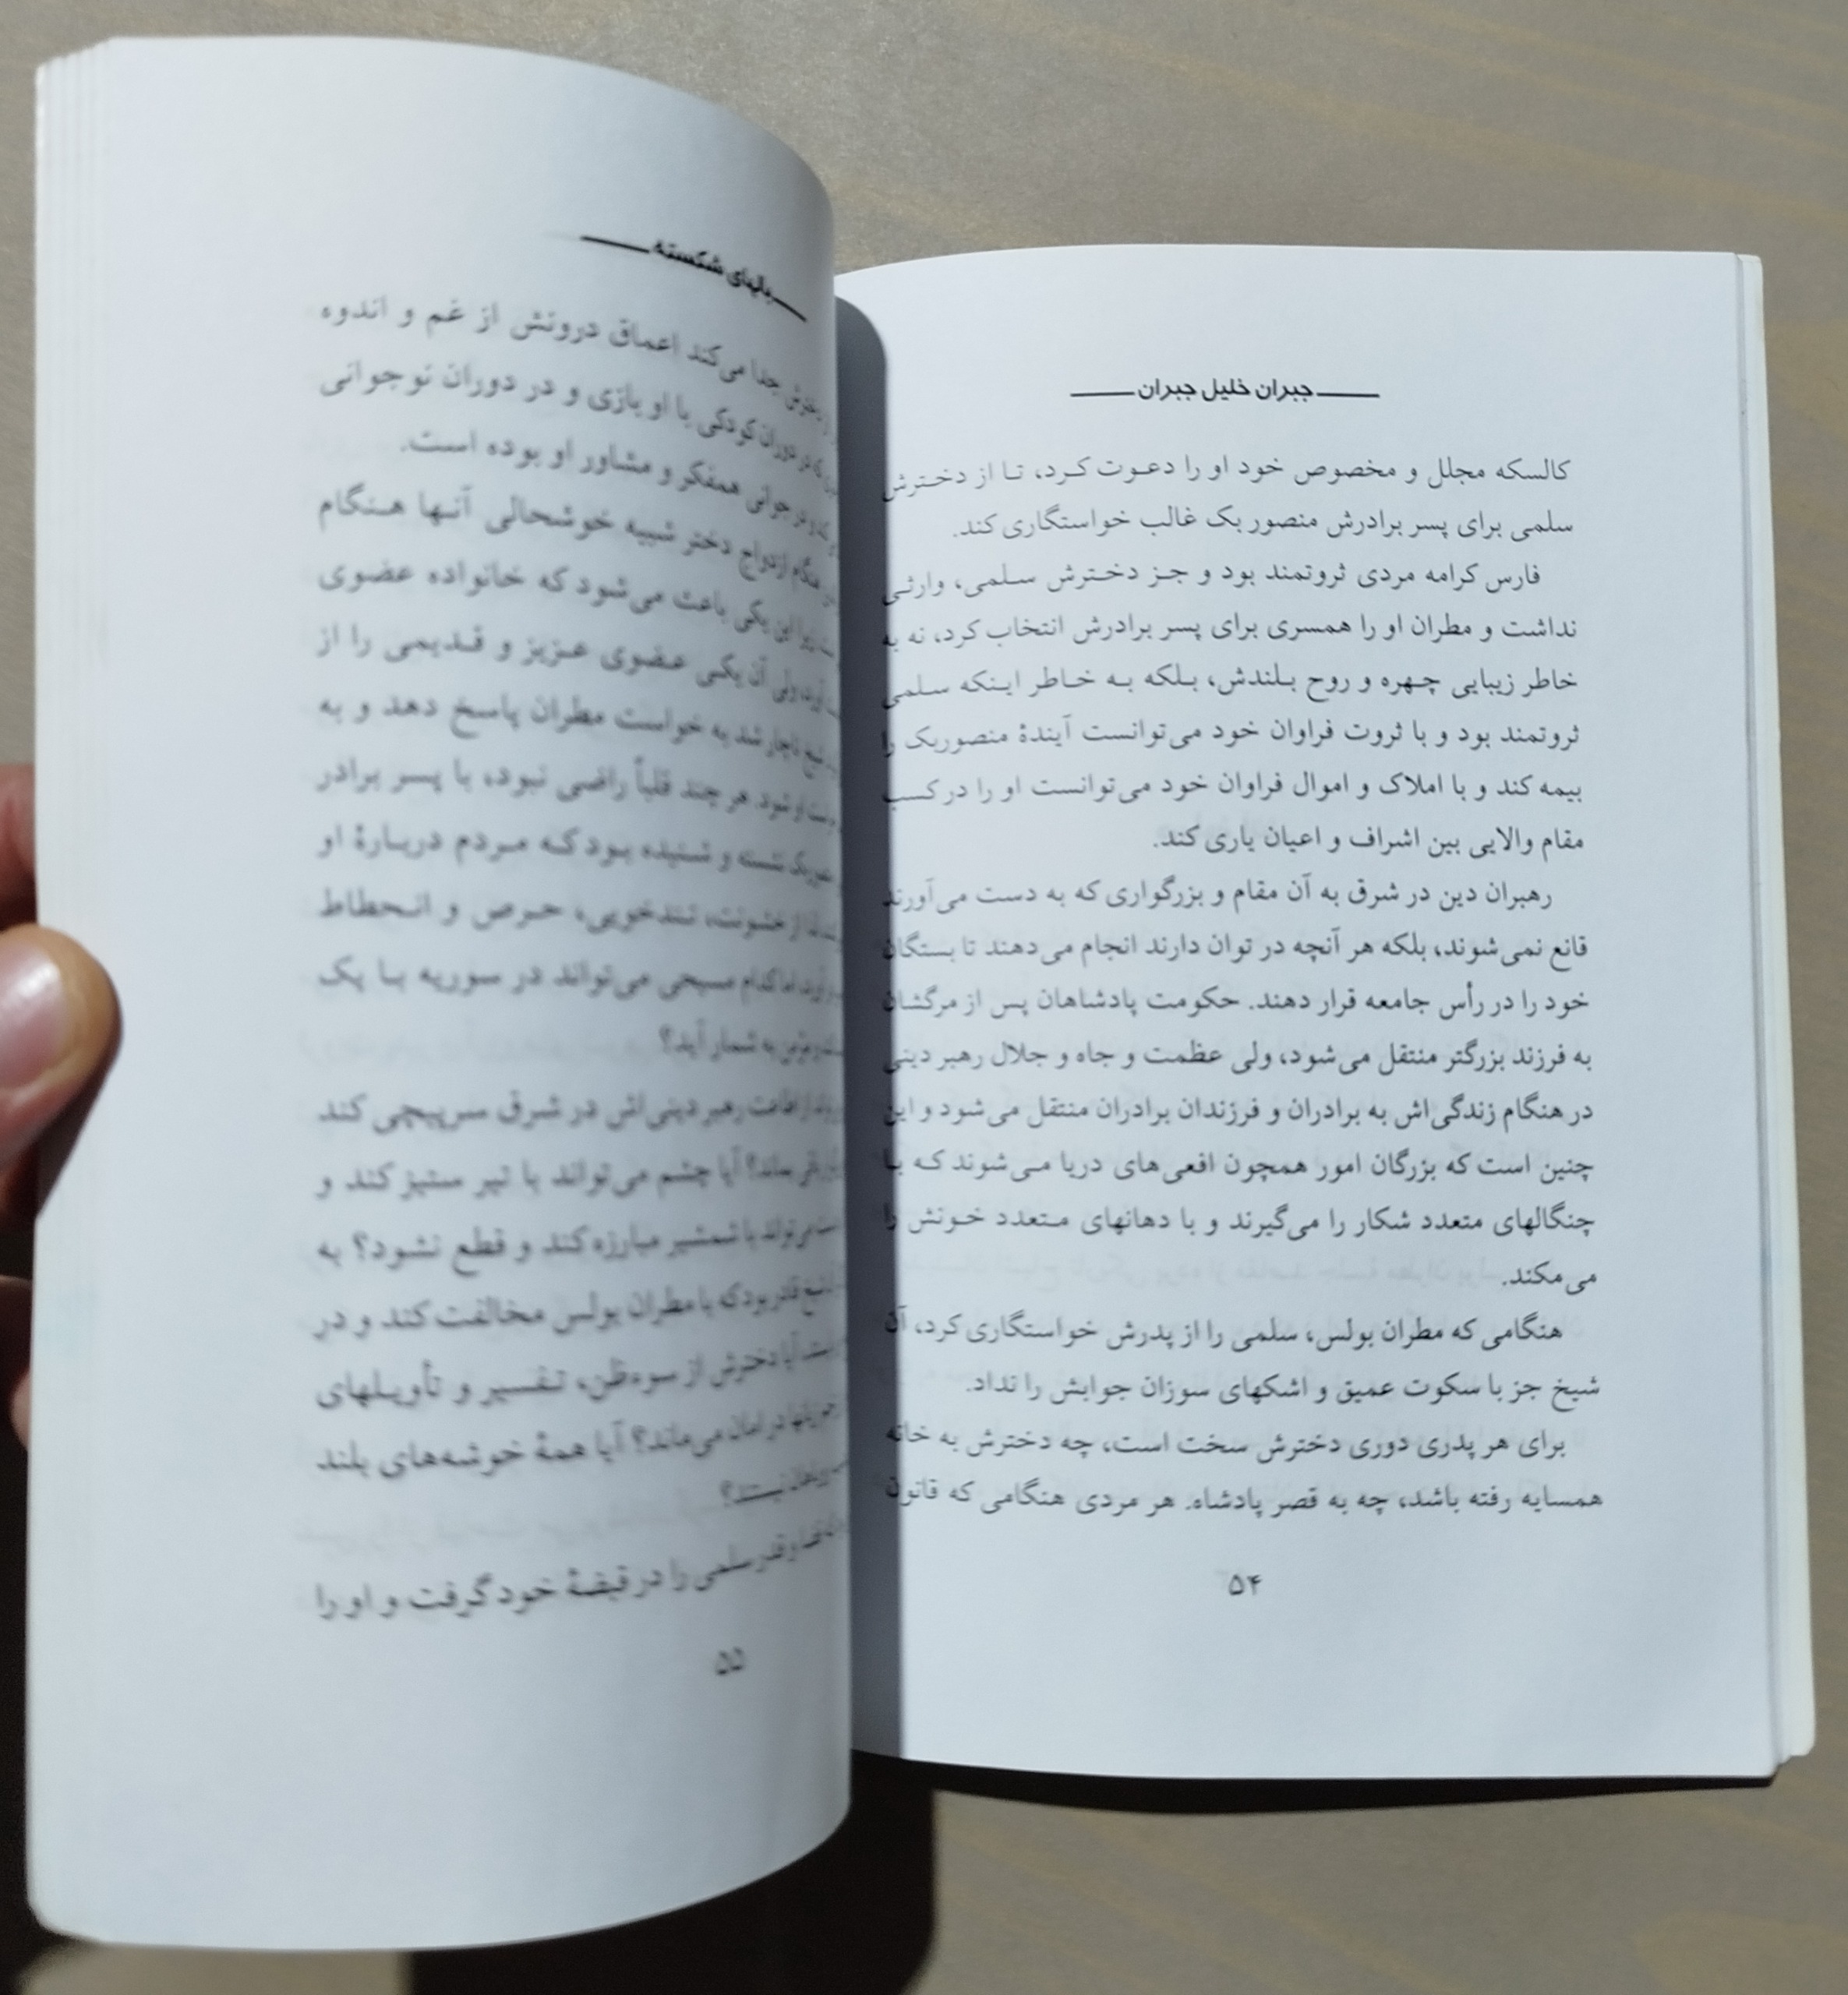 جبران خلیل جبران
کالسکه مجلل و مخصوص خود او را دعوت کرد، تا از دخترش
سلمی برای پسر برادرش منصور بک غالب خواستگاری کند.
فارس کرامه مردی ثروتمند بود و جز دخترش سلمی، وارثی
نداشت و مطران او را همسری برای پسر برادرش انتخاب کرد، نه به
خاطر زیبایی چهره و روح بلندش، بلکه به خاطر اینکه سلمی
ثروتمند بود و با ثروت فراوان خود می‌توانست آیندۀ منصوربک را
بیمه کند و با املاک و اموال فراوان خود می‌توانست او را در کسب
مقام والایی بین اشراف و اعیان یاری کند.
رهبران دین در شرق به آن مقام و بزرگواری که به دست می‌آورند
قانع نمی‌شوند، بلکه هر آنچه در توان دارند انجام می‌دهند تا بستگان
خود را در رأس جامعه قرار دهند. حکومت پادشاهان پس از مرگشان
به فرزند بزرگتر منتقل می‌شود، ولی عظمت و جاه و جلال رهبر دینی
در هنگام زندگی‌اش به برادران و فرزندان برادران منتقل می‌شود و این
چنین است که بزرگان امور همچون افعی‌های دریا می‌شوند که با
چنگالهای متعدد شکار را می‌گیرند و با دهانهای متعدد خونش را
می‌مکند.
هنگامی که مطران بولس، سلمی را از پدرش خواستگاری کرد، آن
شیخ جز با سکوت عمیق و اشکهای سوزان جوابش را نداد.
برای هر پدری دوری دخترش سخت است، چه دخترش به خانه
همسایه رفته باشد، چه به قصر پادشاه. هر مردی هنگامی که قانون
۵۴
بالهای شکسته
دخترش جدا می‌کند اعماق درونش از غم و اندوه
که در دوران کودکی با او بازی و در دوران نوجوانی
و در جوانی همفکر و مشاور او بوده است.
هنگام ازدواج دختر شبیه خوشحالی آنها هنگام
زیرا این یکی باعث می‌شود که خانواده عضوی
ولی آن یکی عضوی عزیز و قدیمی را از
شیخ ناچار شد به خواست مطران پاسخ دهد و به
او شود. هر چند قلباً راضی نبود، با پسر برادر
نشسته و شنیده بود که مردم دربارۀ او
از خشونت، تندخویی، حرص و انحطاط
اما کدام مسیحی می‌تواند در سوریه با یک
به شمار آید؟
از اطاعت رهبر دینی‌اش در شرق سرپیچی کند
بماند؟ آیا چشم می‌تواند با تیر ستیز کند و
می‌تواند با شمشیر مبارزه کند و قطع نشود؟ به
شیخ قادر بود که با مطران بولس مخالفت کند و در
آیا دخترش از سوءظن، تفسیر و تأویلهای
در امان می‌ماند؟ آیا همۀ خوشه‌های بلند
نیستند؟
و قدر سلمی را در قبضۀ خود گرفت و او را
۵۵